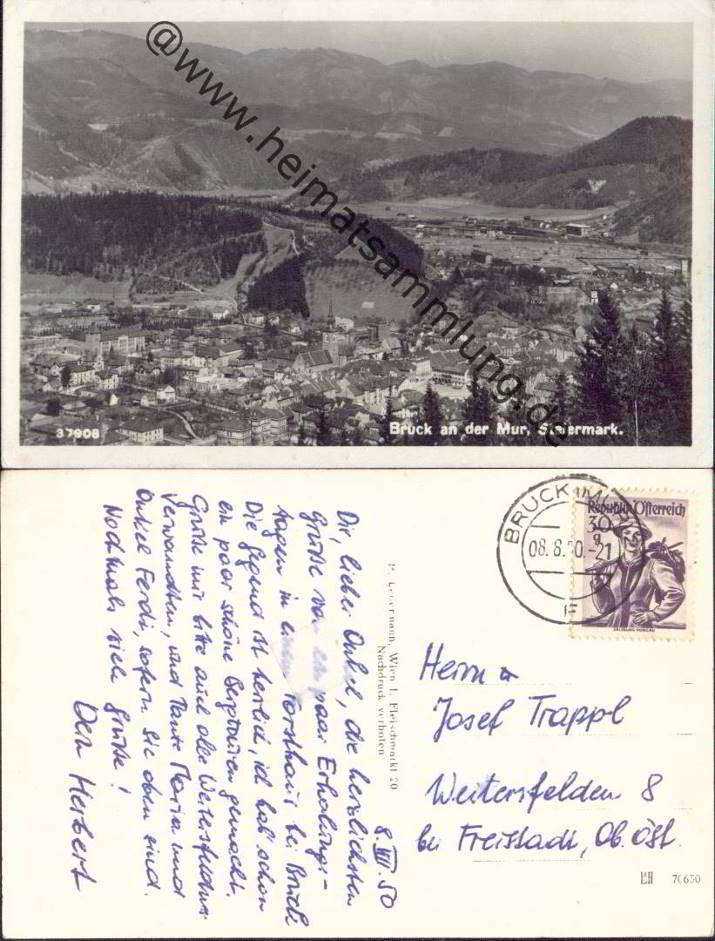 @www.heimatsammlung.de
37908
Bruck an der Mur, Steiermark.
8. VIII. 50
Dir, lieber Onkel, die herzlichsten
Grüße von ein paar Erholungs-
tagen in einem Forsthaus bei Bruck
Die Gegend ist herrlich, ich hab' schon
ein paar schöne Bergtouren gemacht.
Grüße mir bitte auch alle Weitersfeldner
Verwandten, und Tante Maria und
Onkel Ferdi, sofern Sie oben sind.
Nochmals viele Grüße!
Dein Herbert
Wien 1, Fleischmarkt 20
Nachdruck verboten
BRUCK
08.8.50.-21
F
Republik Österreich
30
g
Herrn
Josef Trappl
Weitersfelden 8
bei Freistadt, Ob. Öst.
70650